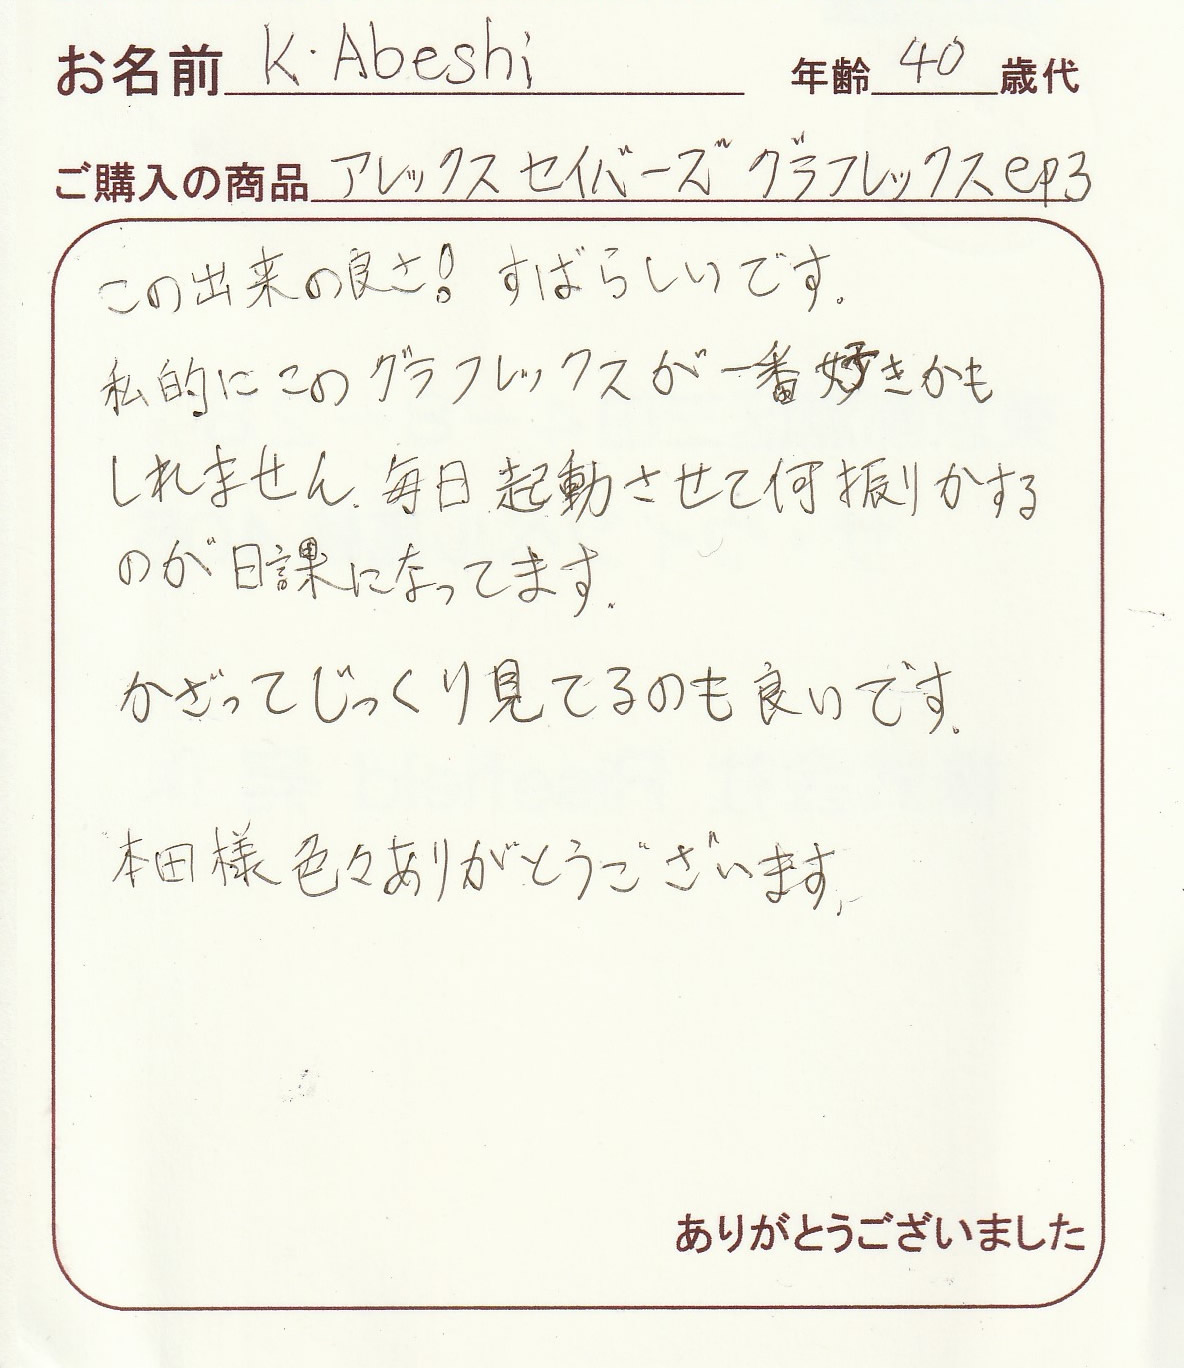 お名前 K・Abeshi 年齢 40 歳代
ご購入の商品 アレックスセイバーズ グラフレックスep3
この出来の良さ! すばらしいです。
私的にこのグラフレックスが一番好きかも
しれません。毎日起動させて何振りかする
のが日課になってます。
かざってじっくり見てるのも良いです。
本田様色々ありがとうございます。
ありがとうございました